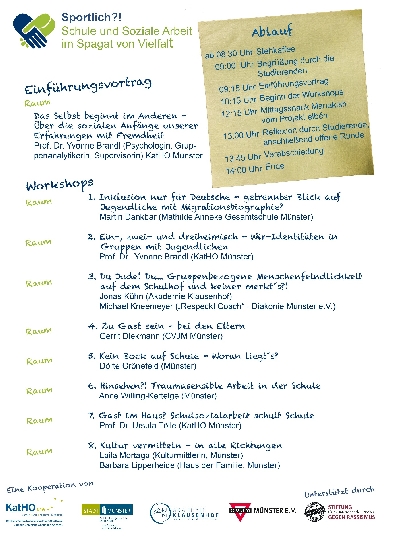 Sportlich?!
Schule und Soziale Arbeit
im Spagat von Vielfalt
Ablauf
ab 08:30 Uhr Stehkaffee
09:00 Uhr Begrüßung durch die
Studierenden
09:15 Uhr Einführungsvortrag
10:15 Uhr Beginn der Workshops
12:15 Uhr Mittagssnack
vom Projekt leben
13:00 Uhr Reflexion durch Studierende,
anschließend offene Runde
13:45 Uhr Verabschiedung
14:00 Uhr Ende
Einführungsvortrag
Raum
Das Selbst beginnt im Anderen –
über die sozialen Anfänge unserer
Erfahrungen mit Fremdheit
Prof. Dr. Yvonne Brandl (Psychologin, Grup-
penanalytikerin, Supervisorin) KatHO Münster
Workshops
Raum
1. Inklusion nur für Deutsche – getrennter Blick auf
Jugendliche mit Migrationsbiographie?
Martin Dankbar (Mathilde Anneke Gesamtschule Münster)
Raum
2. Ein-, zwei- und dreiheimisch – Wir-Identitäten in
Gruppen mit Jugendlichen
Prof. Dr. Yvonne Brandl (KatHO Münster)
Raum
3. Du Jude! Du... Gruppenbezogene Menschenfeindlichkeit
auf dem Schulhof und keiner merkt's?!
Jonas Kühn (Akademie Klausenhof)
Michael Kneemeyer („Respekt Coach“ Diakonie Münster e.V.)
Raum
4. Zu Gast sein – bei den Eltern
Gerrit Diekmann (CVJM Münster)
Raum
5. Kein Bock auf Schule – Woran liegt's?
Dörte Grünefeld (Münster)
Raum
6. Hinsehen?! Traumasensible Arbeit in der Schule
Anne Willing-Kertelge (Münster)
Raum
7. Gast im Haus? Schulsozialarbeit schult Schule
Prof. Dr. Ursula Tölle (KatHO Münster)
Raum
8. Kultur vermitteln – in alle Richtungen
Laila Mortaga (Kulturmittlerin, Münster)
Barbara Lipperheide (Haus der Familie, Münster)
Eine Kooperation von
Unterstützt durch
KatHO
STADT MÜNSTER
KLAUSENHOF
MÜNSTER E.V.
STIFTUNG
GEGEN RASSISMUS